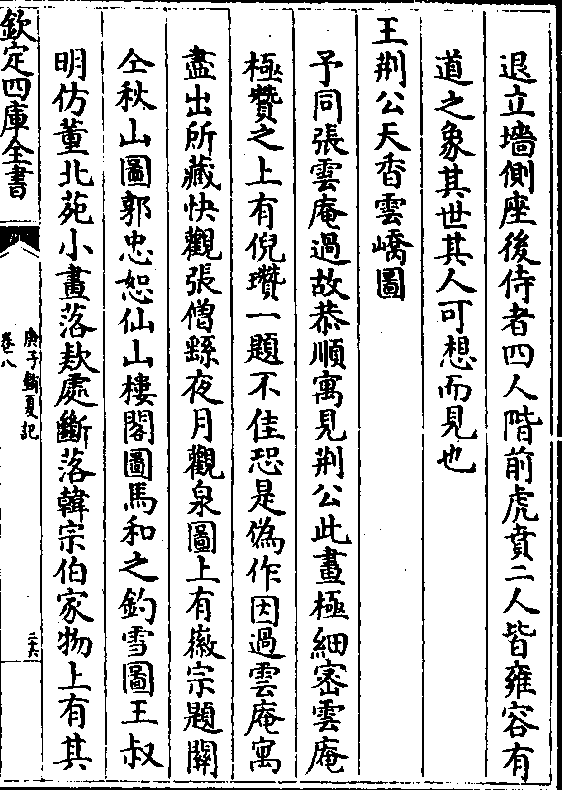 退立墻側座後侍者四人階前虎賁二人皆雍容有
道之象其世其人可想而見也
王荆公天香雲嶠圖
予同張雲庵過故恭順寓見荆公此畫極細宻雲庵
極贊之上有倪瓚一題不佳恐是偽作因過雲庵寓
盡出所藏快觀張僧繇夜月觀泉圖上有徽宗題關
仝秋山圖郭忠恕仙山樓閣圖馬和之釣雪圖王叔
明仿董北苑小畫落欵處斷落韓宗伯家物上有其
欽定四庫全書
庚子銷夏記
卷八
二六